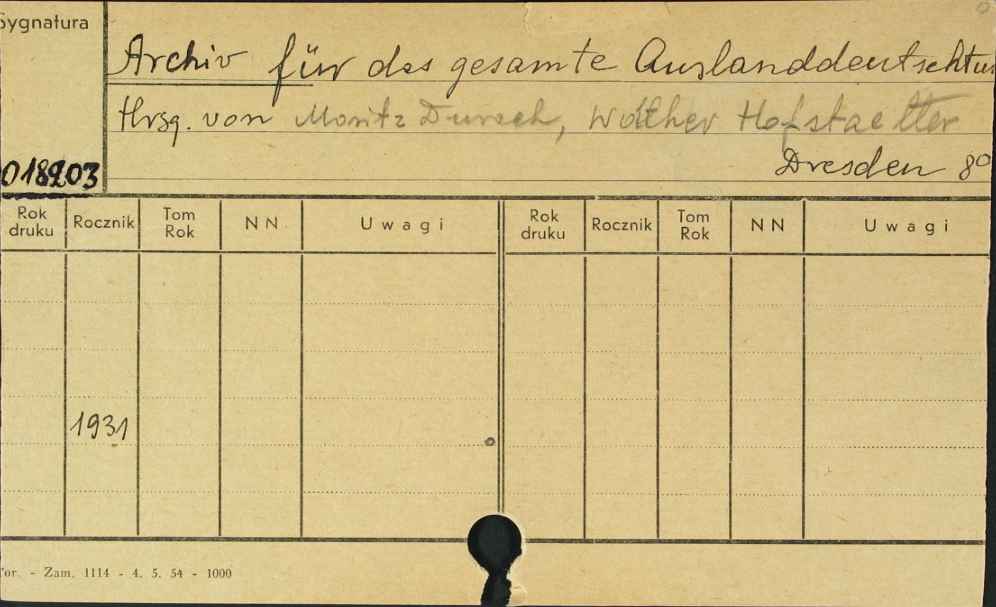 Sygnatura
Archiv für das gesamte Auslanddeutschtu
Hrsg. von Moritz Durach, Walther Hofstaetter
Dresden 8°
018203
Rok druku Rocznik Tom Rok NN Uwagi Rok druku Rocznik Tom Rok NN Uwagi
1931
Tor. - Zam. 1114 - 4. 5. 54 - 1000